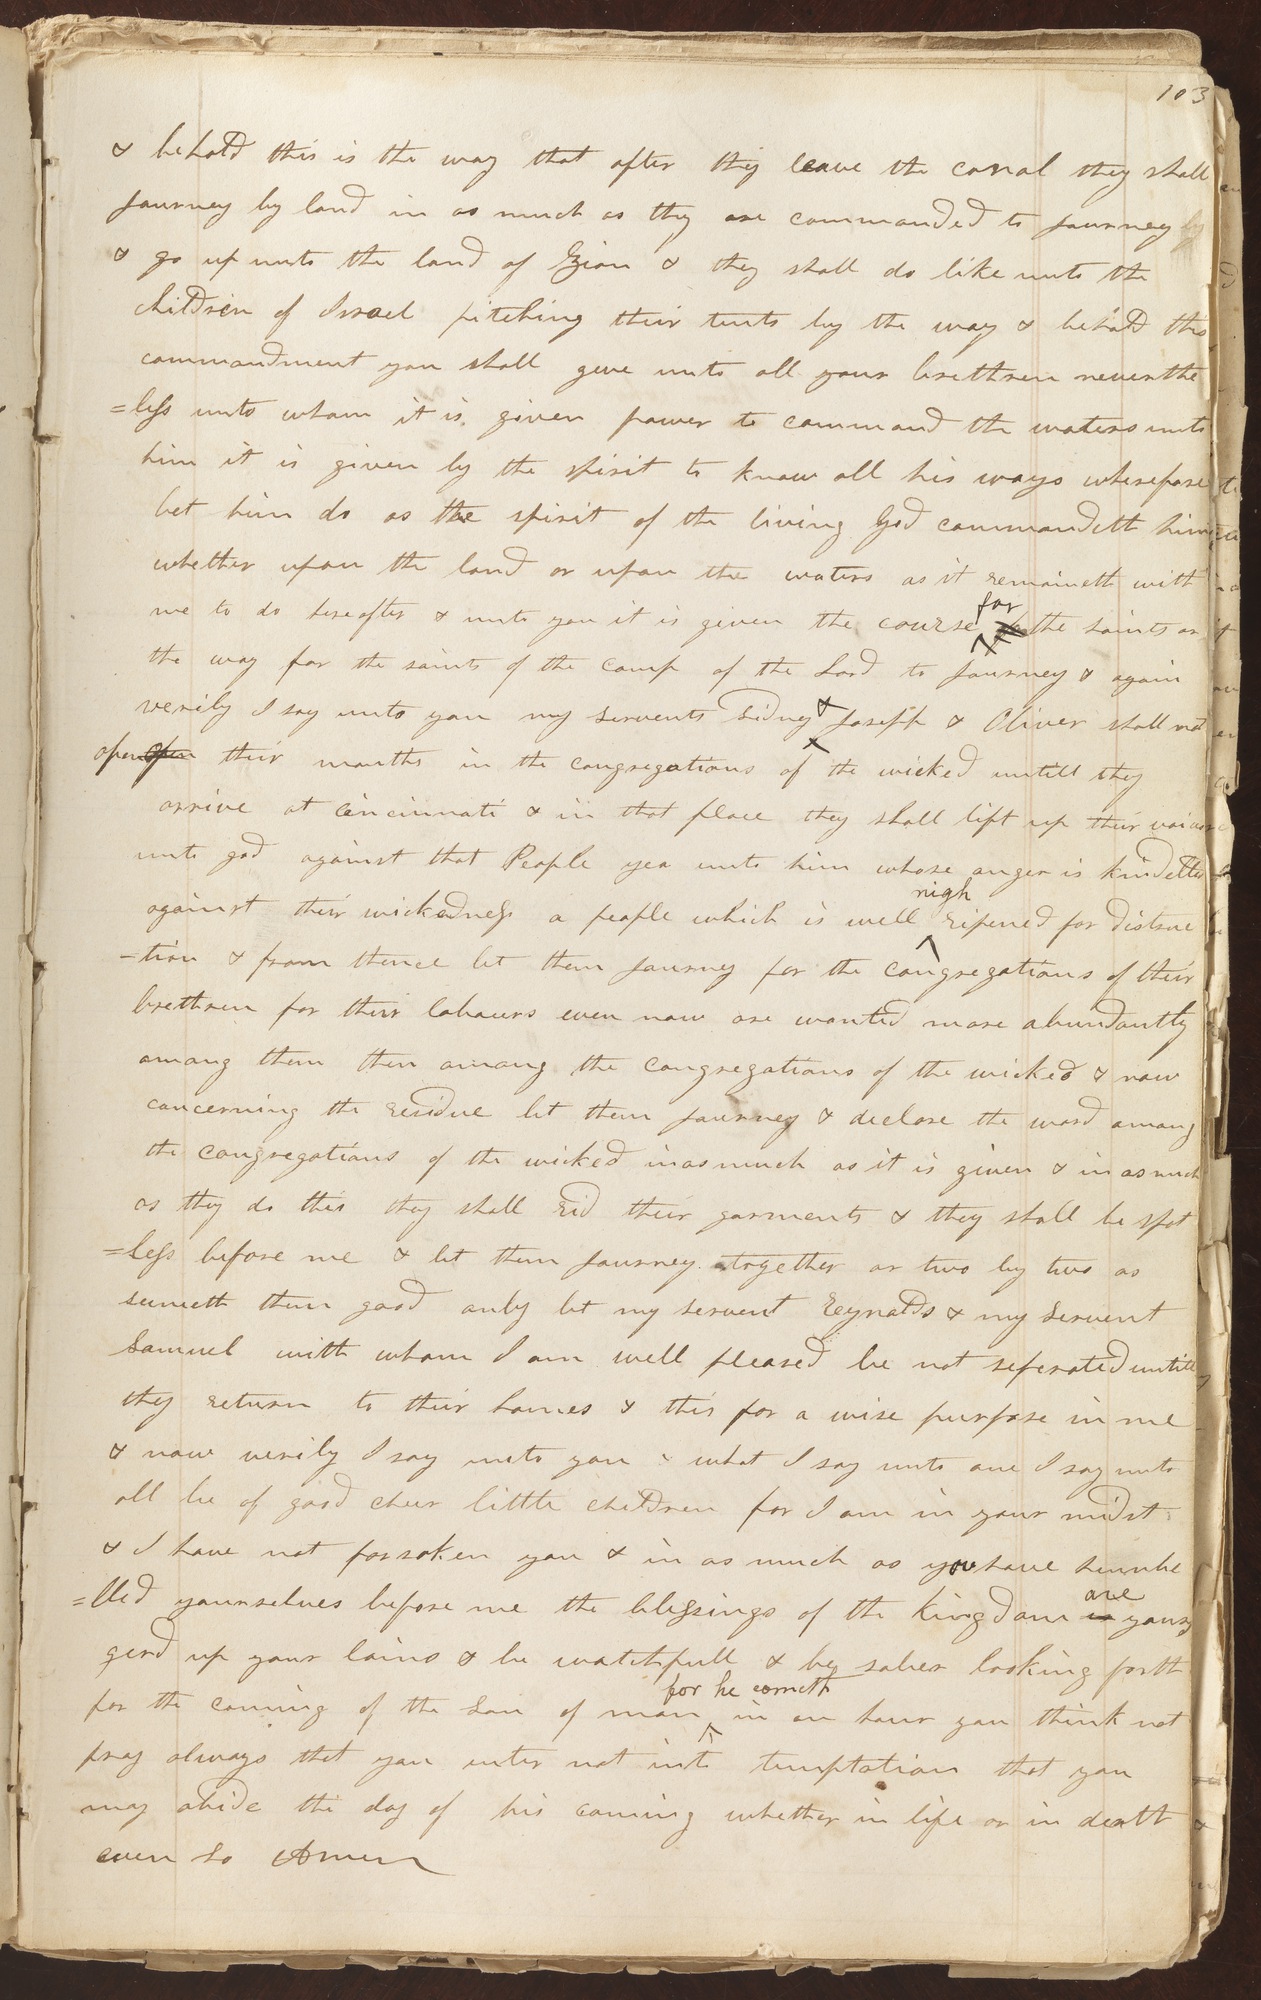 103
& behold this is the way that after they leave the canal they shall
journey by land in as much as they are commanded to journey by
& go up unto the land of Zion & they shall do like unto the
children of Israel pitching their tents by the way & behold this
commandment you shall give unto all your brethren neverthe
=less unto whom it is given power to command the waters unto
him it is given by the spirit to know all his ways wherefore
let him do as the spirit of the living God commandeth him
whether upon the land or upon the waters as it remaineth with
me to do hereafter & unto you it is given the course for the saints or
the way for the saints of the camp of the Lord to journey & again
verily I say unto you my servents Sidney & Joseph & Oliver shall not
open open their mouths in the congregations of the wicked untill they
arrive at cincinnati & in that place they shall lift up their voices
unto god against that People yea unto him whose anger is kindelled
against their wickedness a people which is well nigh ripened for distruc
-tion & from thence let them journey for the congregations of their
brethren for their labours even now are wanted more abundantly
among them then among the congregations of the wicked & now
concerning the residue let them journey & declare the word among
the congregations of the wicked inasmuch as it is given & in as much
as they do this they shall rid their garments & they shall be spot
=less before me & let them journey together or two by two as
seemeth them good only let my servent Reynolds & my servent
Samuel with whom I am well pleased be not seperated untill
they return to their homes & this for a wise purpose in me
& now verily I say unto you & what I say unto one I say unto
all be of good cheer little children for I am in your midst
& I have not forsaken you & in as much as you have humbe
=lled yourselves before me the blessings of the Kingdom is are yours
gird up your loins & be watchfull & be sober looking forth
for the coming of the Son of man for he cometh in an hour you think not
pray always that you enter not into temptation that you
may abide the day of his coming whether in life or in death
even so Amen